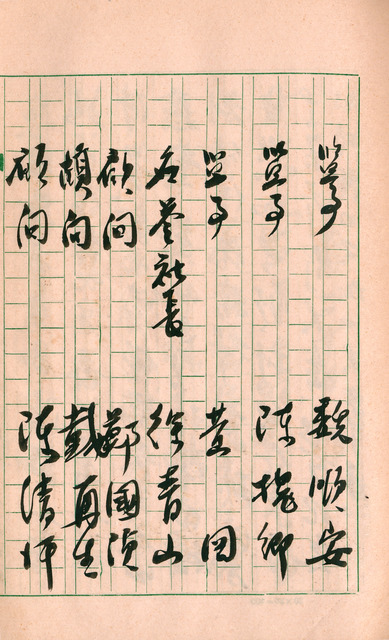 監事 魏順安
監事 陳槐卿
監事 黃回
名譽社長 徐青山
顧問 鄭國湞
顧問 戴真生
顧問 陳清